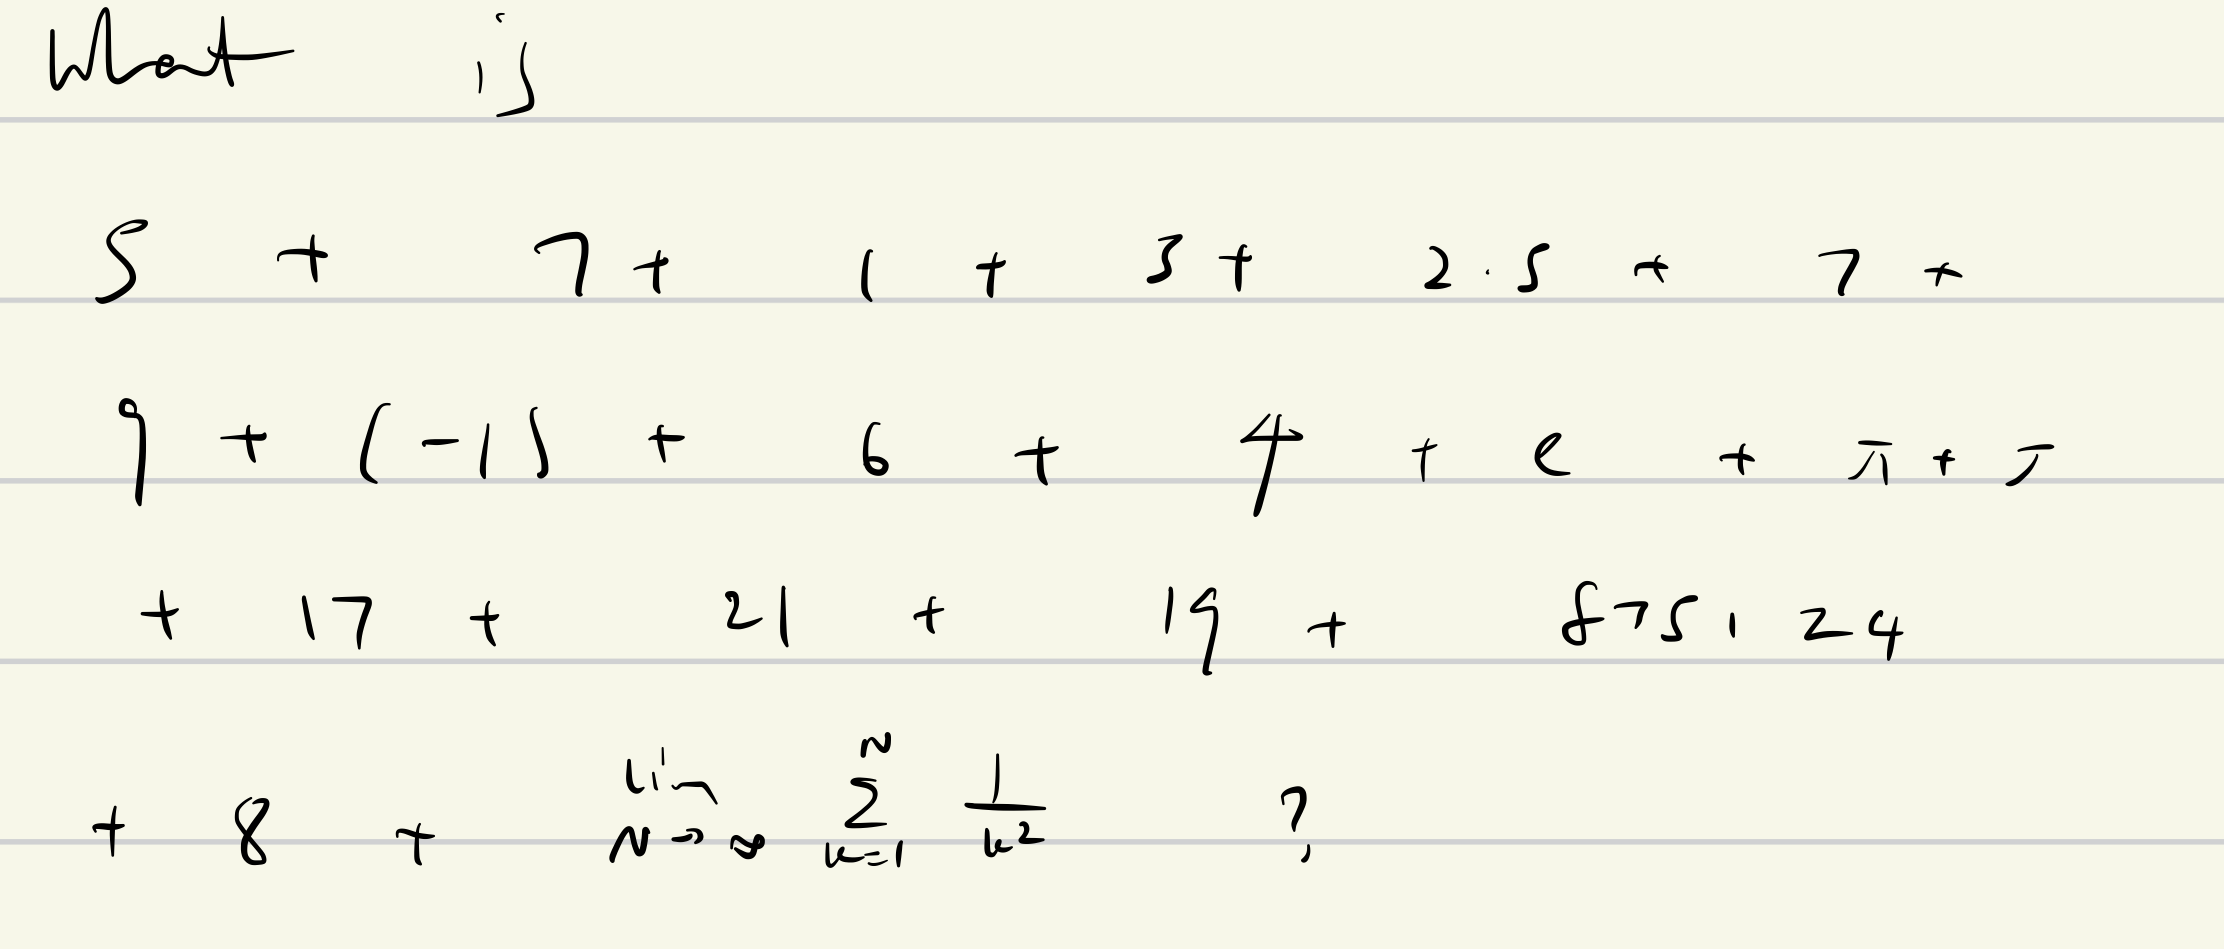 What is
5 + 7 + 1 + 3 + 2.5 + 7 +
9 + (-1) + 6 + 4 + e + π +
+ 17 + 21 + 19 + 875.24
+ 8 + lim N→∞ ∑ N k=1 1/k² ?